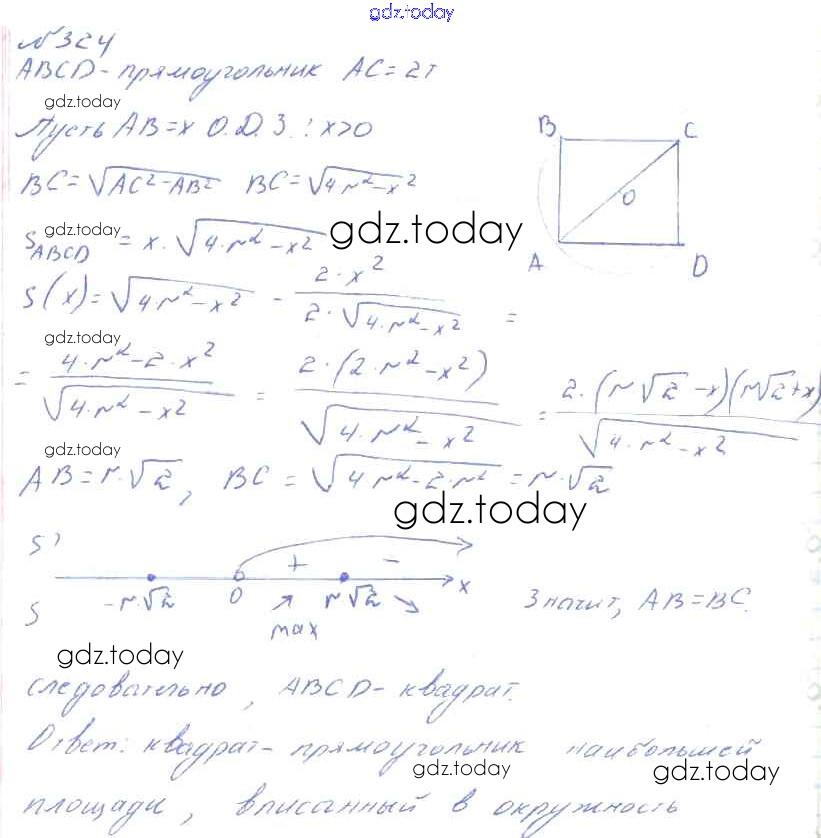 gdz.today
№324
ABCD - прямоугольник AC = 2r
gdz.today
Пусть AB = x О.Д.З.: x>0
BC = √(AC² - AB²) BC = √(4·r² - x²)
S_ABCD = x·√(4·r² - x²) gdz.today
B C
O
A D
S'(x) = √(4·r² - x²) - (2·x²)/(2·√(4·r² - x²)) =
gdz.today
= (4·r² - 2·x²)/√(4·r² - x²) = (2·(2·r² - x²))/√(4·r² - x²) = (2·(r√2 - x)(r√2 + x))/√(4·r² - x²)
gdz.today
AB = r·√2, BC = √(4r² - 2·r²) = r·√2
gdz.today
S' + -
-r√2 0 r√2 x
S ↗ ↘
max
Значит, AB = BC.
gdz.today
следовательно, ABCD - квадрат.
Ответ: квадрат - прямоугольник наибольшей
gdz.today gdz.today
площади, вписанный в окружность